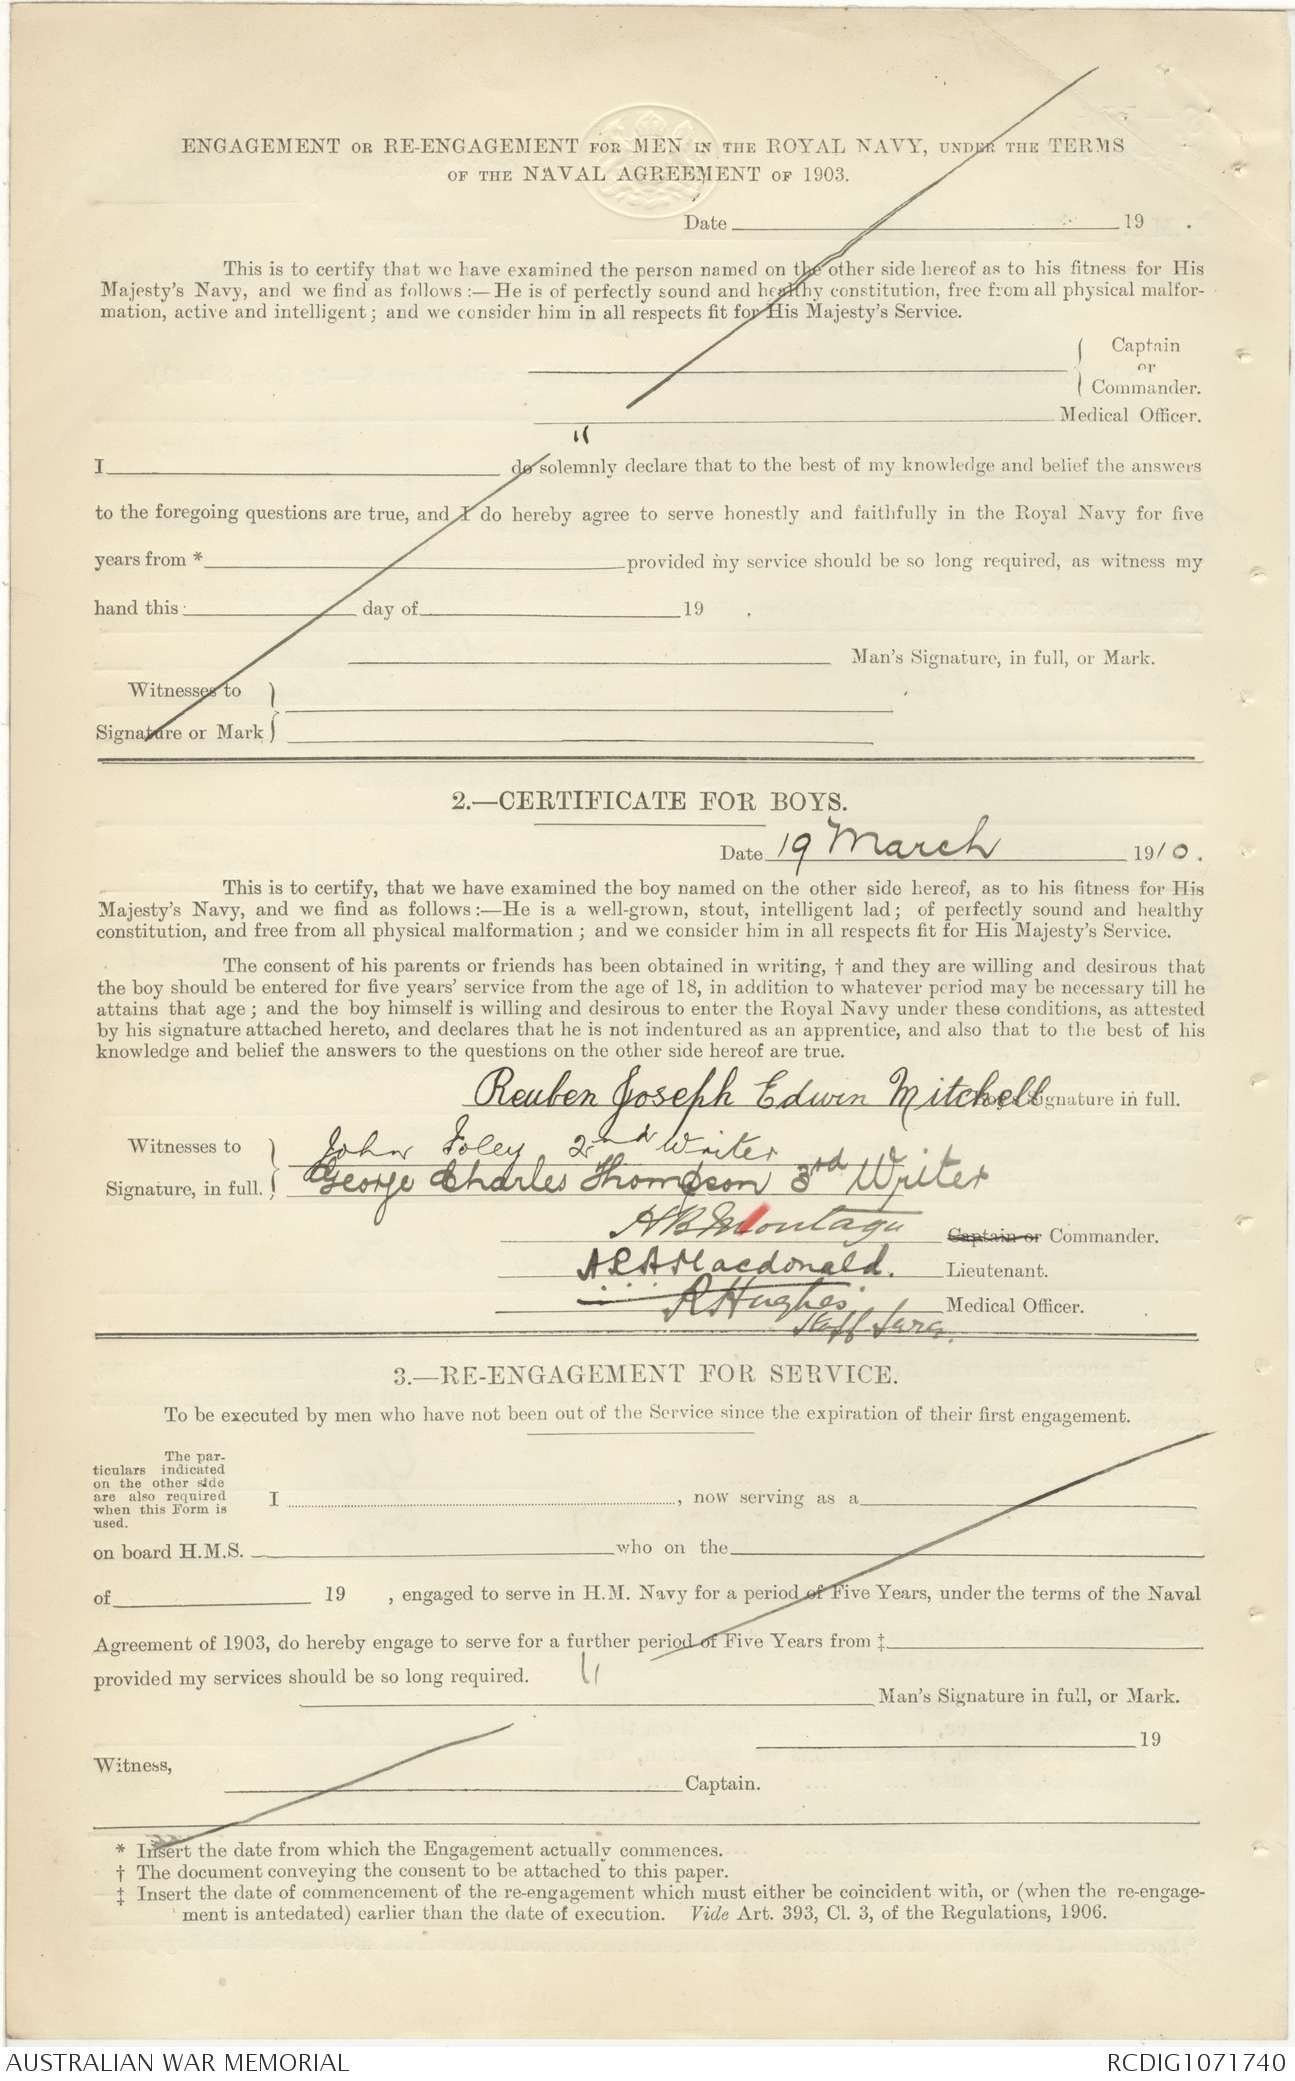 ENGAGEMENT OR RE-ENGAGEMENT FOR MEN IN THE ROYAL NAVY, UNDER THE TERMS
OF THE NAVAL AGREEMENT OF 1903.
Date 19 .
This is to certify that we have examined the person named on the other side hereof as to his fitness for His
Majesty's Navy, and we find as follows:—He is of perfectly sound and healthy constitution, free from all physical malfor-
mation, active and intelligent; and we consider him in all respects fit for His Majesty's Service.
Captain
or
Commander.
Medical Officer.
I do solemnly declare that to the best of my knowledge and belief the answers
to the foregoing questions are true, and I do hereby agree to serve honestly and faithfully in the Royal Navy for five
years from * provided my service should be so long required, as witness my
hand this day of 19 .
Man's Signature, in full, or Mark.
Witnesses to
Signature or Mark
2.—CERTIFICATE FOR BOYS.
Date 19 March 1910.
This is to certify, that we have examined the boy named on the other side hereof, as to his fitness for His
Majesty's Navy, and we find as follows:—He is a well-grown, stout, intelligent lad; of perfectly sound and healthy
constitution, and free from all physical malformation; and we consider him in all respects fit for His Majesty's Service.
The consent of his parents or friends has been obtained in writing, † and they are willing and desirous that
the boy should be entered for five years' service from the age of 18, in addition to whatever period may be necessary till he
attains that age; and the boy himself is willing and desirous to enter the Royal Navy under these conditions, as attested
by his signature attached hereto, and declares that he is not indentured as an apprentice, and also that to the best of his
knowledge and belief the answers to the questions on the other side hereof are true.
Reuben Joseph Edwin Mitchell Signature in full.
Witnesses to
John Foley 2nd Writer
Signature, in full.
George Charles Thompson 3rd Writer
H B Montagu Captain or Commander.
A R A Macdonald. Lieutenant.
R Hughes Medical Officer.
Staff Surg.
3.—RE-ENGAGEMENT FOR SERVICE.
To be executed by men who have not been out of the Service since the expiration of their first engagement.
The par-
ticulars indicated
on the other side
are also required
when this Form is
used.
I , now serving as a
on board H.M.S. who on the
of 19 , engaged to serve in H.M. Navy for a period of Five Years, under the terms of the Naval
Agreement of 1903, do hereby engage to serve for a further period of Five Years from ‡
provided my services should be so long required.
Man's Signature in full, or Mark.
19
Witness,
Captain.
* Insert the date from which the Engagement actually commences.
† The document conveying the consent to be attached to this paper.
‡ Insert the date of commencement of the re-engagement which must either be coincident with, or (when the re-engage-
ment is antedated) earlier than the date of execution. Vide Art. 393, Cl. 3, of the Regulations, 1906.
AUSTRALIAN WAR MEMORIAL
RCDIG1071740